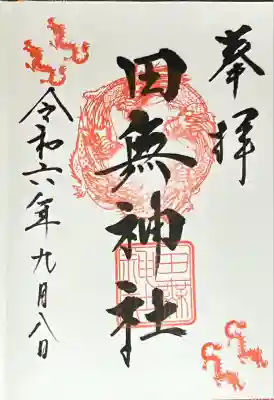 奉拝
田無神社
令和六年九月八日
田無神社